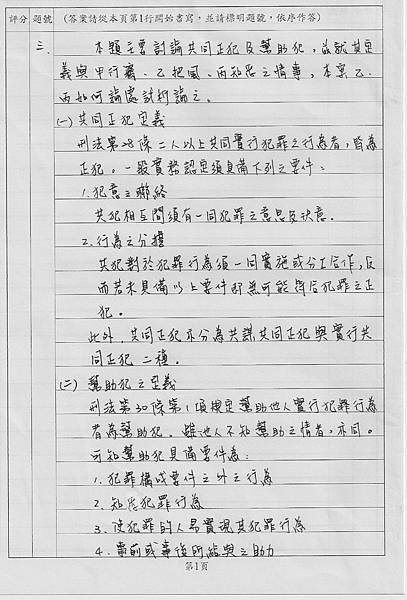 評分 題號 (答案請從本頁第1行開始書寫,並請標明題號,依序作答)
三、 本題主要討論共同正犯及幫助犯,茲就其定
義與甲行竊、乙把風、丙知悉之情事,本案乙、
丙如何論處試析論之。
(一)共同正犯定義
刑法第28條二人以上共同實行犯罪之行為者,皆為
正犯。一般實務認定須具備下列之要件:
1.犯意之聯絡
共犯相互間須有一同犯罪之意思及決意。
2.行為之分擔
共犯對於犯罪行為須一同實施或分工合作,反
而若未具備以上要件即無可能符合犯罪之正
犯。
此外,共同正犯亦分為共謀共同正犯與實行共
同正犯二種。
(二)幫助犯之定義
刑法第30條第1項規定幫助他人實行犯罪行為
者為幫助犯。雖他人不知幫助之情者,亦同。
可知幫助犯具備要件為:
1.犯罪構成要件之外之行為
2.知悉犯罪行為
3.使犯罪的人易實現其犯罪行為
4.事前或事後所給與之助力
第1頁